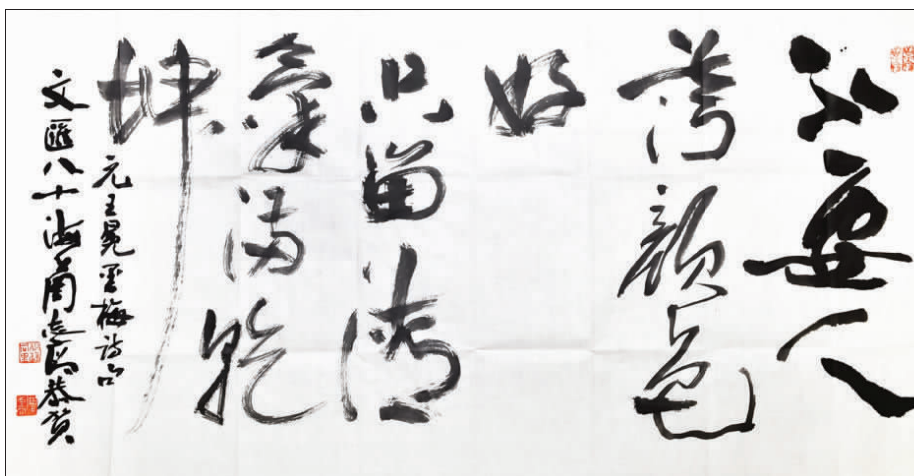 不要人
誇顏色
好
只留清
氣滿乾
坤
元王冕墨梅詩句
文匯八十海上周志高恭賀